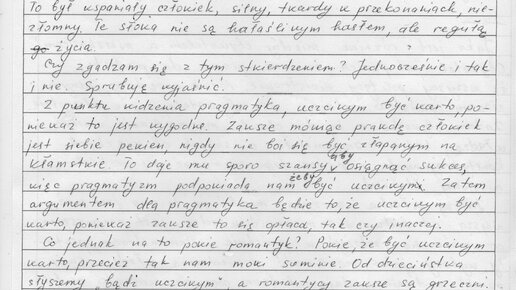 To być wspaniały człowiek, silny, twardy w przekonaniach, nie-
złomny. Te słowa nie są hałaśliwym hasłem, ale regułą
go życia.
Czy zgadzam się z tym stwierdzeniem? Jednocześnie i tak
i nie. Spróbuję wyjaśnić.
Z punktu widzenia pragmatyka, uczciwym być warto, po-
nieważ to jest wygodne. Zawsze mówiąc prawdę człowiek
jest siebie pewien, nigdy nie boi się być złapanym na
kłamstwie. To daje mu sporo szansy żeby osiągnąć sukces,
więc pragmatyzm podpowiada nam żeby być uczciwym. Zatem
argumentem dla pragmatyka będzie to, że uczciwym być
warto, ponieważ zawsze to się opłaca, tak czy inaczej.
Co jednak na to powie romantyk? Powie, że być uczciwym
warto, przecież tak nam mówi sumienie. Od dzieciństwa
słyszemy „bądź uczciwym", a romantycy zawsze są grzeczni.